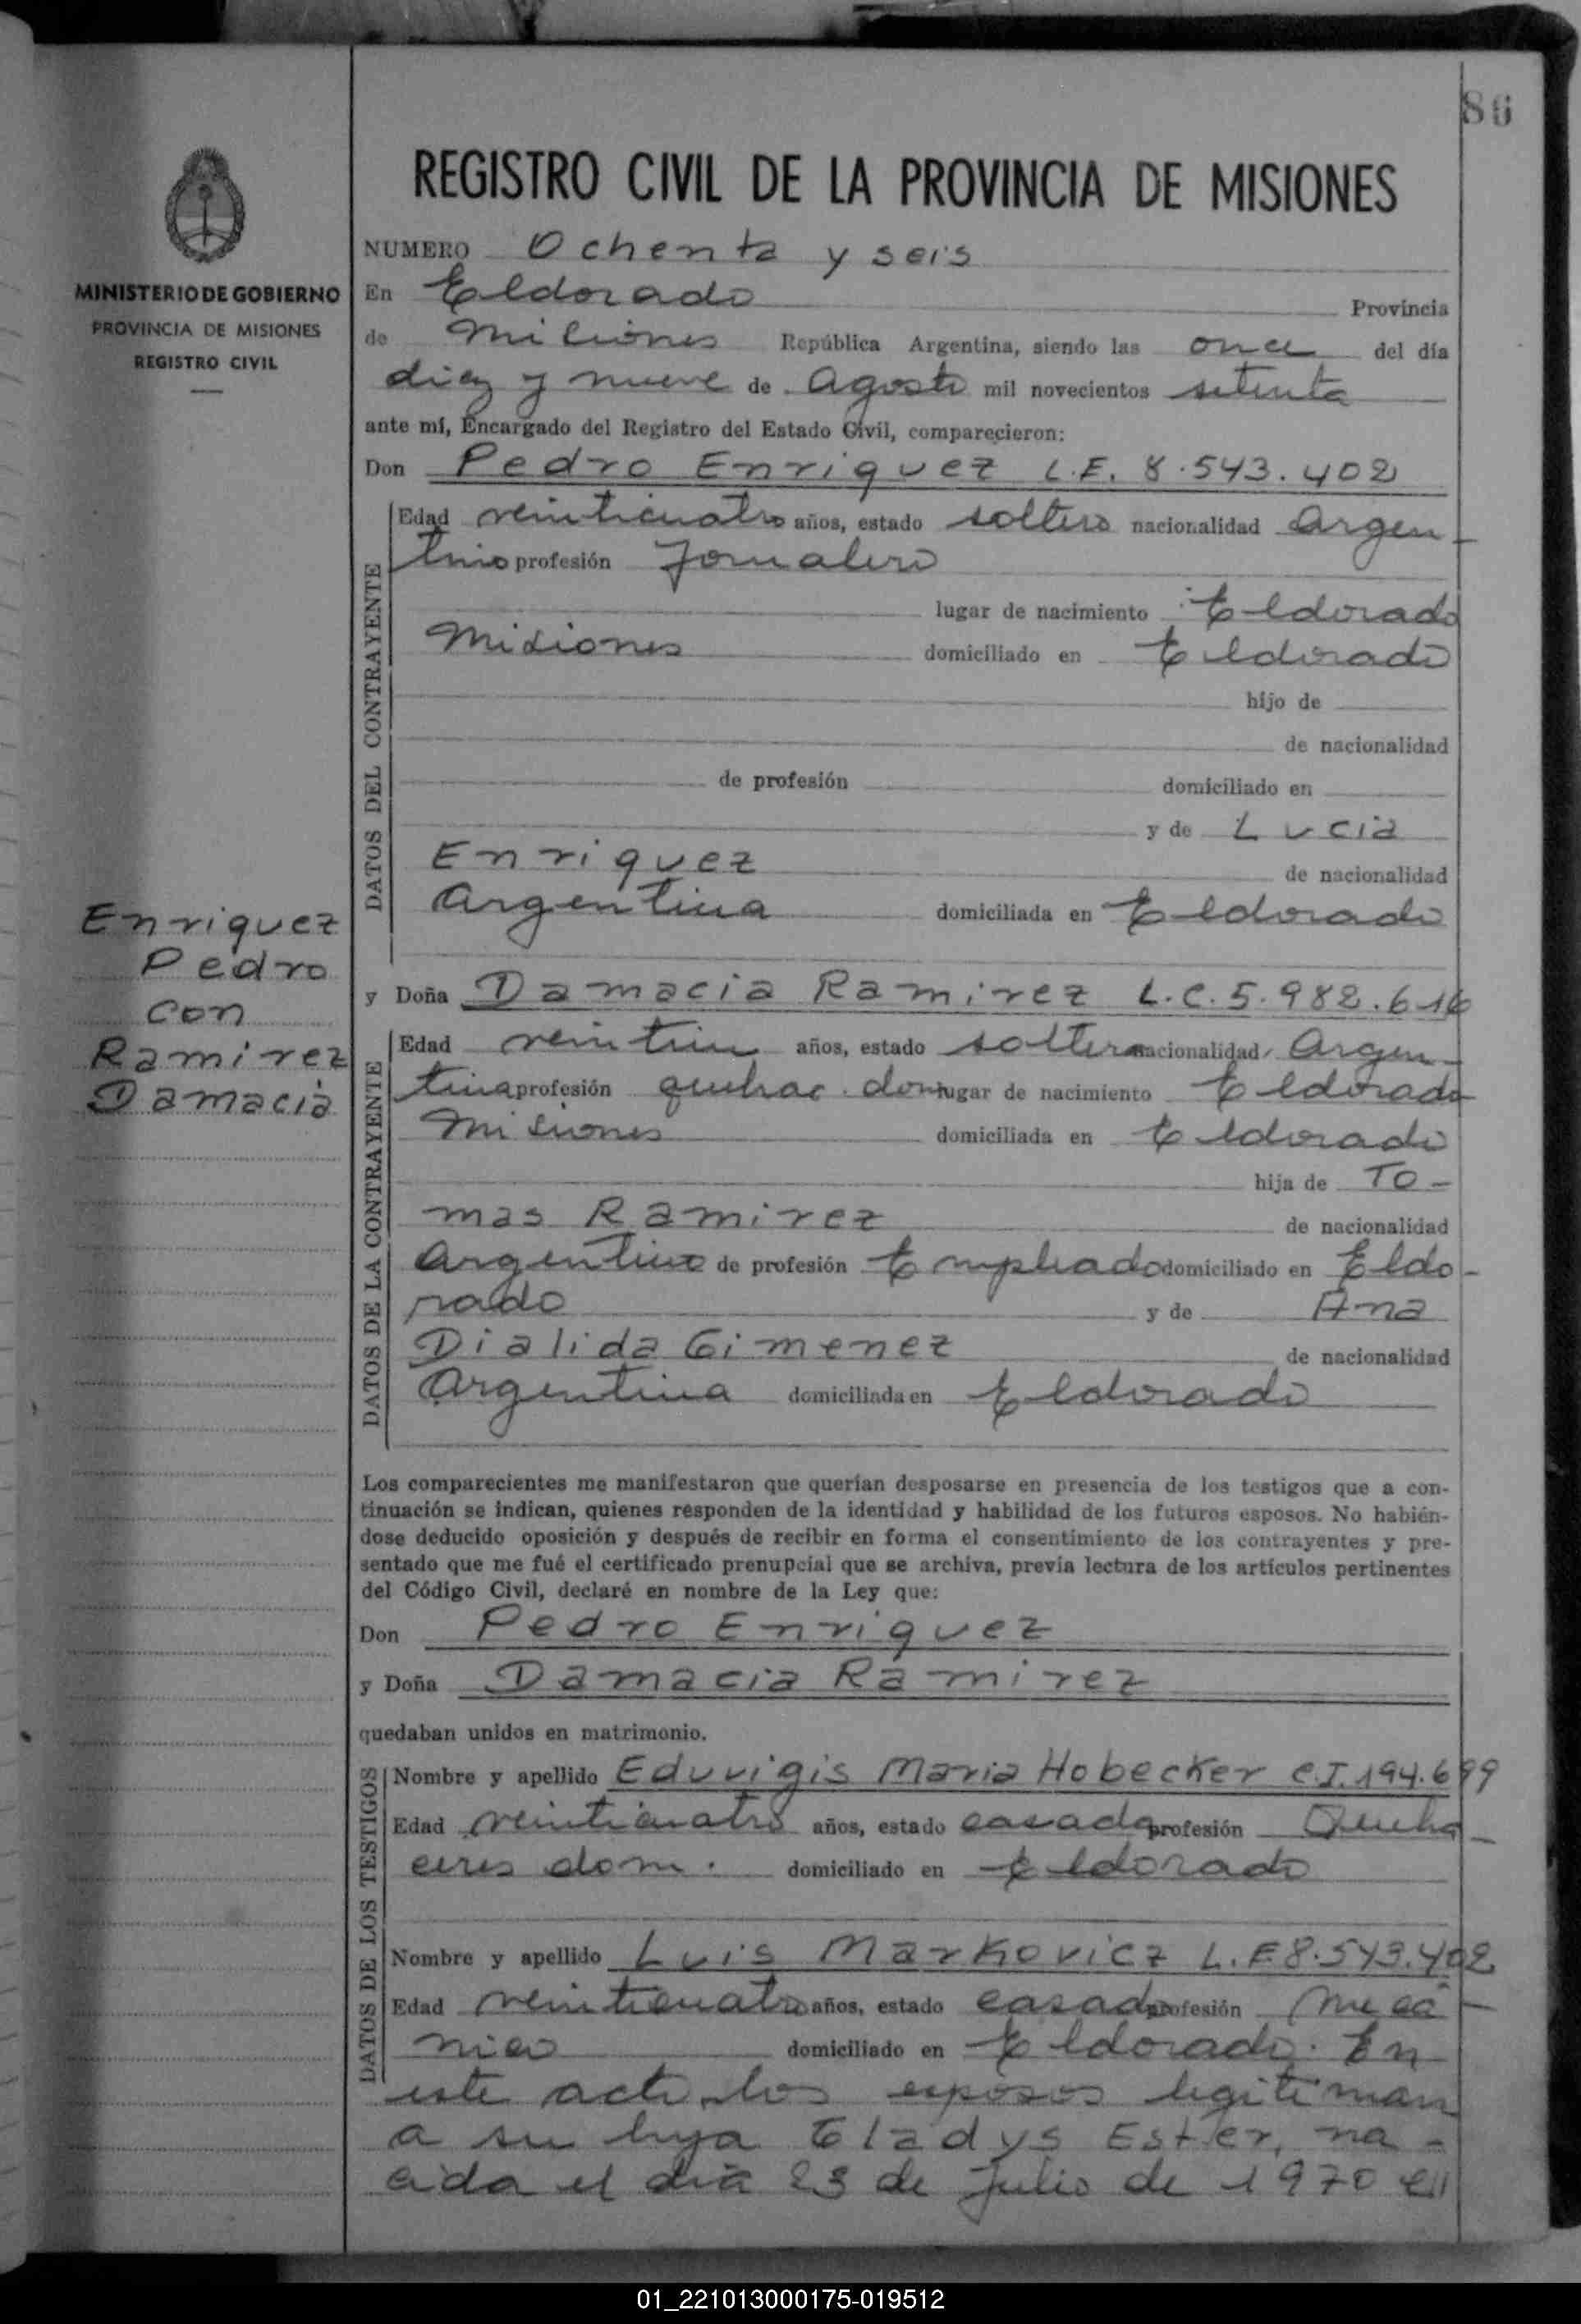 86
REGISTRO CIVIL DE LA PROVINCIA DE MISIONES
MINISTERIO DE GOBIERNO
PROVINCIA DE MISIONES
REGISTRO CIVIL
NUMERO Ochenta y seis
En Eldorado Provincia
de Misiones República Argentina, siendo las once del día
diez y nueve de Agosto mil novecientos setenta
ante mí, Encargado del Registro del Estado Civil, comparecieron:
Don Pedro Enriquez L.E. 8.543.402
DATOS DEL CONTRAYENTE
Edad veinticuatro años, estado soltero nacionalidad Argen-
tino profesión Jornalero
lugar de nacimiento Eldorado
Misiones domiciliado en Eldorado
hijo de
de nacionalidad
de profesión domiciliado en
y de Lucia
Enriquez de nacionalidad
Argentina domiciliada en Eldorado
Enriquez
Pedro
con
Ramirez
Damacia
y Doña Damacia Ramirez L.C. 5.982.616
DATOS DE LA CONTRAYENTE
Edad veintiun años, estado soltera nacionalidad Argen-
tina profesión quehac. dom. lugar de nacimiento Eldorado
Misiones domiciliada en Eldorado
hija de To-
mas Ramirez de nacionalidad
Argentino de profesión Empleado domiciliado en Eldo-
rado y de Ana
Dialida Gimenez de nacionalidad
Argentina domiciliada en Eldorado
Los comparecientes me manifestaron que querían desposarse en presencia de los testigos que a con-
tinuación se indican, quienes responden de la identidad y habilidad de los futuros esposos. No habién-
dose deducido oposición y después de recibir en forma el consentimiento de los contrayentes y pre-
sentado que me fué el certificado prenupcial que se archiva, previa lectura de los artículos pertinentes
del Código Civil, declaré en nombre de la Ley que:
Don Pedro Enriquez
y Doña Damacia Ramirez
quedaban unidos en matrimonio.
DATOS DE LOS TESTIGOS
Nombre y apellido Eduvigis Maria Hobecker C.I. 194.699
Edad veinticuatro años, estado casada profesión Queha-
ceres dom. domiciliado en Eldorado
Nombre y apellido Luis Markovicz L.E 8.543.402
Edad veinticuatro años, estado casado profesión Mecá-
nico domiciliado en Eldorado. En
este acto los esposos legitiman
a su hija Gladys Ester, na-
cida el día 23 de Julio de 1970 en
01_221013000175-019512